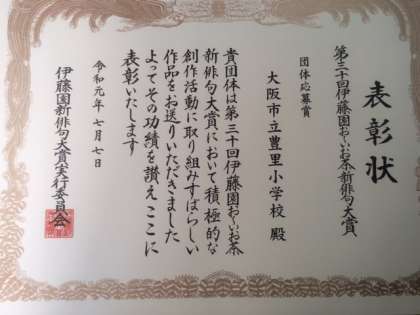 表彰状
第三十回伊藤園お〜いお茶新俳句大賞
団体応募賞
大阪市立豊里小学校 殿
貴団体は第三十回伊藤園お〜いお茶
新俳句大賞において積極的な
創作活動に取り組みすばらしい
作品をお送りいただきました
よってその功績を讃えここに
表彰いたします
令和元年七月七日
伊藤園新俳句大賞実行委員会